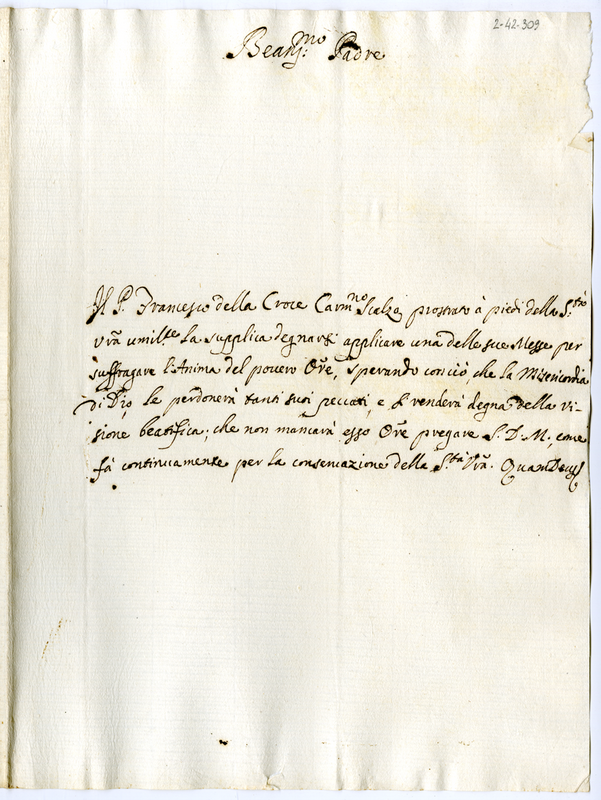 2-42-309
Beatiss:mo Padre
Il P. Francesco della Croce Carmno Scalzo prostrato à piedi della S.tà
Vrã umilte la supplica degnarsi applicare una delle sue Messe per
suffragare l'Anima del povero Orẽ, sperando conciò, che la Misericordia
di Dio le perdonerà tanti suoi peccati, e renderà degna della vi-
sione beatifica; che non mancarà esso Orẽ pregare S. D. M. come
fà continuamente per la conservazione della S.tà Vrã. Quam Deus